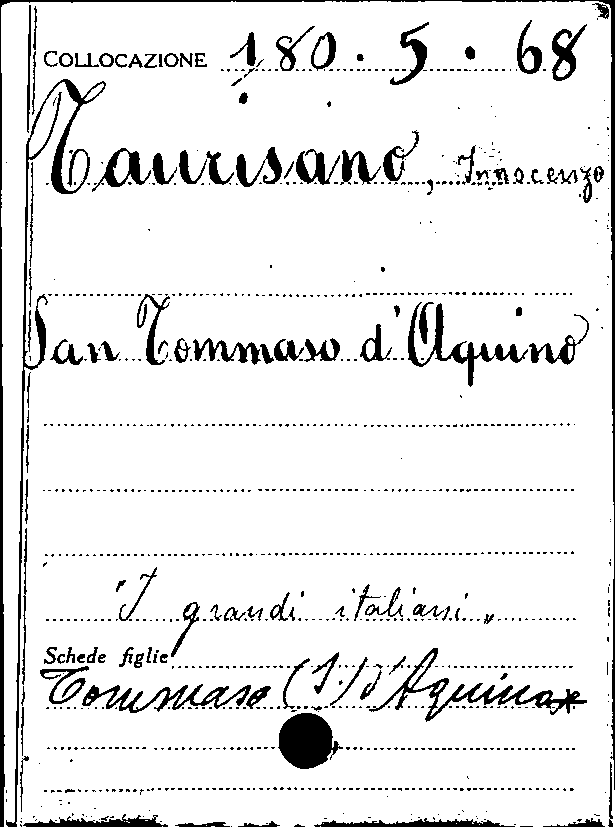 COLLOCAZIONE 180.5.68
Taurisano, Innocenzo
San Tommaso d'Aquino
"I grandi italiani"
Schede figlie
Tommaso (S.) d'Aquino